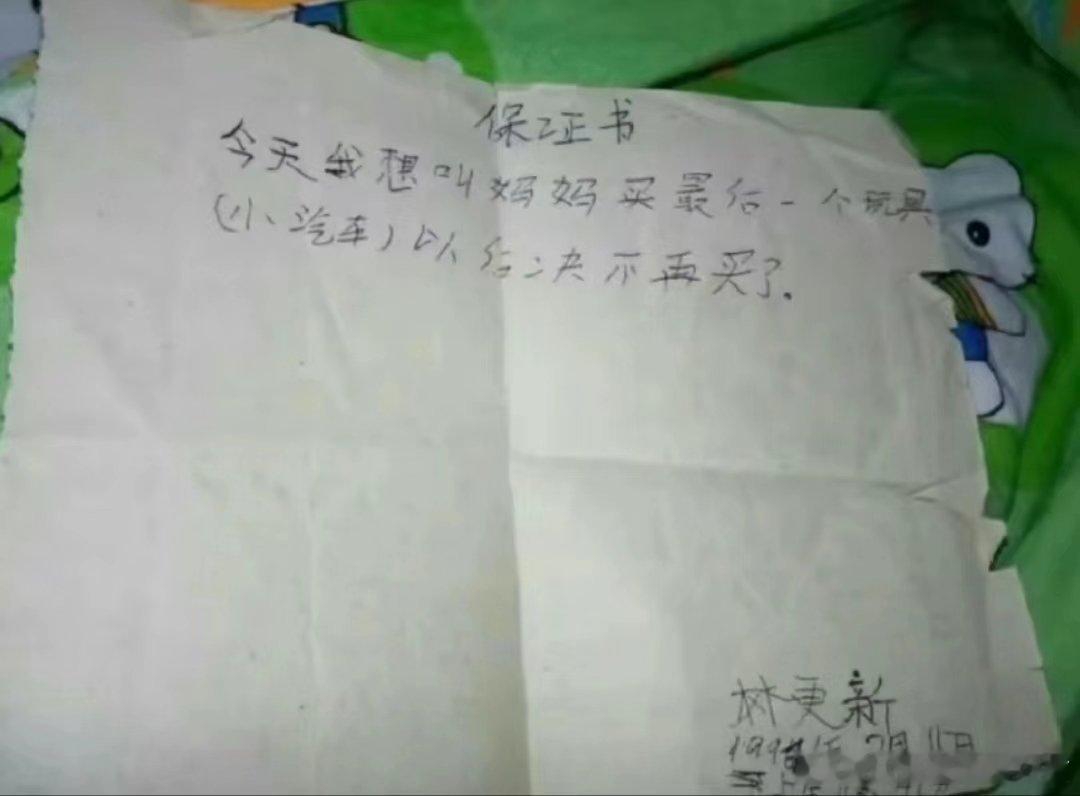 保证书
今天我想叫妈妈买最后一个玩具
(小汽车)以后决不再买了.
林更新
7月11日